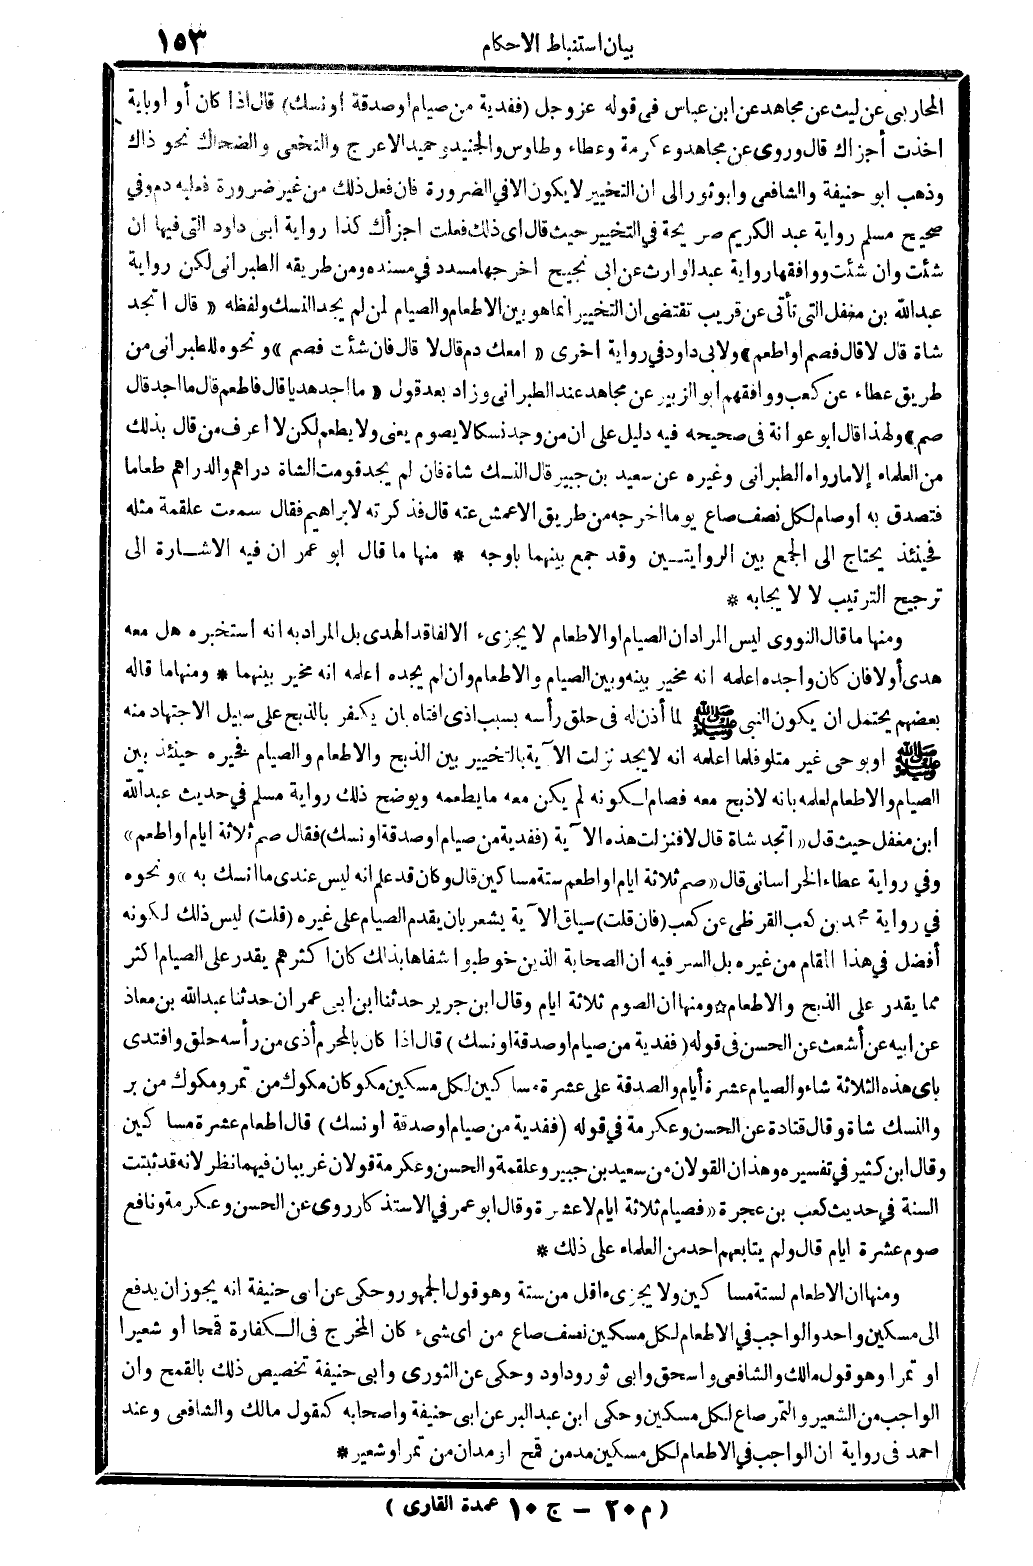 بيان استنباط الاحكام
١٥٣
المحاربى عن ليث عن مجاهد عن ابن عباس فى قوله عز وجل (ففدية من صيام او صدقة او نسك) قال اذا كان أو أو باية
اخذت أجزاك قال وروى عن مجاهد وعكرمة وعطاء وطاوس والجنيد وحميد الاعرج والنخعى والضحاك نحو ذاك
وذهب ابو حنيفة والشافعى وابو ثور الى ان التخيير لا يكون الا في الضرورة فان فعل ذلك من غير ضرورة فعليه دم وفي
صحيح مسلم رواية عبد الكريم صريحة في التخيير حيث قال اى ذلك فعلت اجزأك كذا رواية ابى داود التى فيها ان
شئت وان شئت ووافقها رواية عبد الوارث عن ابى نجيح اخرجها مسدد في مسنده ومن طريقه الطبرانى لكن رواية
عبدالله بن مغفل التى تأتى عن قريب تقتضى ان التخيير انما هو بين الاطعام والصيام لمن لم يجد النسك ولفظه « قال اتجد
شاة قال لا قال فصم او اطعم » ولابى داود في رواية اخرى « امعك دم قال لا قال فان شئت فصم » ونحوه للطبرانى من
طريق عطاء عن كعب ووافقهم ابو الزبير عن مجاهد عند الطبرانى وزاد بعد قول « ما اجد هديا قال فاطعم قال ما اجد قال
صم » ولهذا قال ابو عوانة فى صحيحه فيه دليل على ان من وجد نسكا لا يصوم يعنى ولا يطعم لكن لا أعرف من قال بذلك
من العلماء إلا ما رواه الطبرانى وغيره عن سعيد بن جبير قال النسك شاة فان لم يجد قومت الشاة دراهم والدراهم طعاما
فتصدق به أو صام لكل نصف صاع يوما اخرجه من طريق الاعمش عنه قال فذكرته لابراهيم فقال سمعت علقمة مثله
فحينئذ يحتاج الى الجمع بين الروايتين وقد جمع بينهما باوجه * منها ما قال ابو عمر ان فيه الاشارة الى
ترجيح الترتيب لا لايجابه *
ومنها ما قال النووى ليس المراد ان الصيام او الاطعام لا يجزىء الا لفاقد الهدى بل المراد به انه استخبره هل معه
هدى أو لا فان كان واجده اعلمه انه مخير بينه وبين الصيام والاطعام وان لم يجده اعلمه انه مخير بينهما * ومنها ما قاله
بعضهم يحتمل ان يكون النبى ﷺ لما أذن له فى حلق رأسه بسبب اذى افتاه بان يكفر بالذبح على سبيل الاجتهاد منه
ﷺ او بوحى غير متلو فلما اعلمه انه لا يجد نزلت الآية بالتخيير بين الذبح والاطعام والصيام فخيره حينئذ بين
الصيام والاطعام لعلمه بانه لا ذبح معه فصام لكونه لم يكن معه ما يطعمه ويوضح ذلك رواية مسلم في حديث عبدالله
ابن مغفل حيث قال « اتجد شاة قال لا فنزلت هذه الآية (ففدية من صيام او صدقة او نسك) فقال صم ثلاثة ايام او اطعم »
وفي رواية عطاء الخراسانى قال « صم ثلاثة ايام او اطعم ستة مساكين قال وكان قد علم انه ليس عندى ما انسك به » ونحوه
في رواية محمد بن كعب القرظى عن كعب (فان قلت) سياق الآية يشعر بان يقدم الصيام على غيره (قلت) ليس ذلك لكونه
أفضل في هذا المقام من غيره بل السر فيه ان الصحابة الذين خوطبوا شفاها بذلك كان اكثرهم يقدر على الصيام اكثر
مما يقدر على الذبح والاطعام ☆ ومنها ان الصوم ثلاثة ايام وقال ابن جرير حدثنا ابن ابى عمران حدثنا عبدالله بن معاذ
عن ابيه عن أشعث عن الحسن فى قوله (ففدية من صيام او صدقة او نسك) قال اذا كان بالمحرم أذى من رأسه حلق وافتدى
باى هذه الثلاثة شاء والصيام عشرة أيام والصدقة على عشرة مساكين لكل مسكين مكوكان مكوك من تمر ومكوك من بر
والنسك شاة وقال قتادة عن الحسن وعكرمة في قوله (ففدية من صيام او صدقة أو نسك) قال اطعام عشرة مساكين
وقال ابن كثير في تفسيره وهذان القولان من سعيد بن جبير وعلقمة والحسن وعكرمة قولان غريبان فيهما نظر لانه قد ثبتت
السنة في حديث كعب بن عجرة « فصيام ثلاثة ايام لا عشرة وقال ابو عمر في الاستذكار روى عن الحسن وعكرمة ونافع
صوم عشرة ايام قال ولم يتابعهم احد من العلماء على ذلك *
ومنها ان الاطعام لستة مساكين ولا يجزىء اقل من ستة وهو قول الجمهور وحكى عن ابى حنيفة انه يجوز ان يدفع
الى مسكين واحد والواجب في الاطعام لكل مسكين نصف صاع من اى شىء كان المخرج فى الكفارة قمحا او شعيرا
او تمرا وهو قول مالك والشافعى واسحق وابى ثور وداود وحكى عن الثورى وابى حنيفة تخصيص ذلك بالقمح وان
الواجب من الشعير والتمر صاع لكل مسكين وحكى ابن عبد البر عن ابى حنيفة واصحابه كقول مالك والشافعى وعند
احمد فى رواية ان الواجب في الاطعام لكل مسكين مد من قمح او مدان من تمر او شعير *
( م ٢٠ – ج ١٠ عمدة القارى )